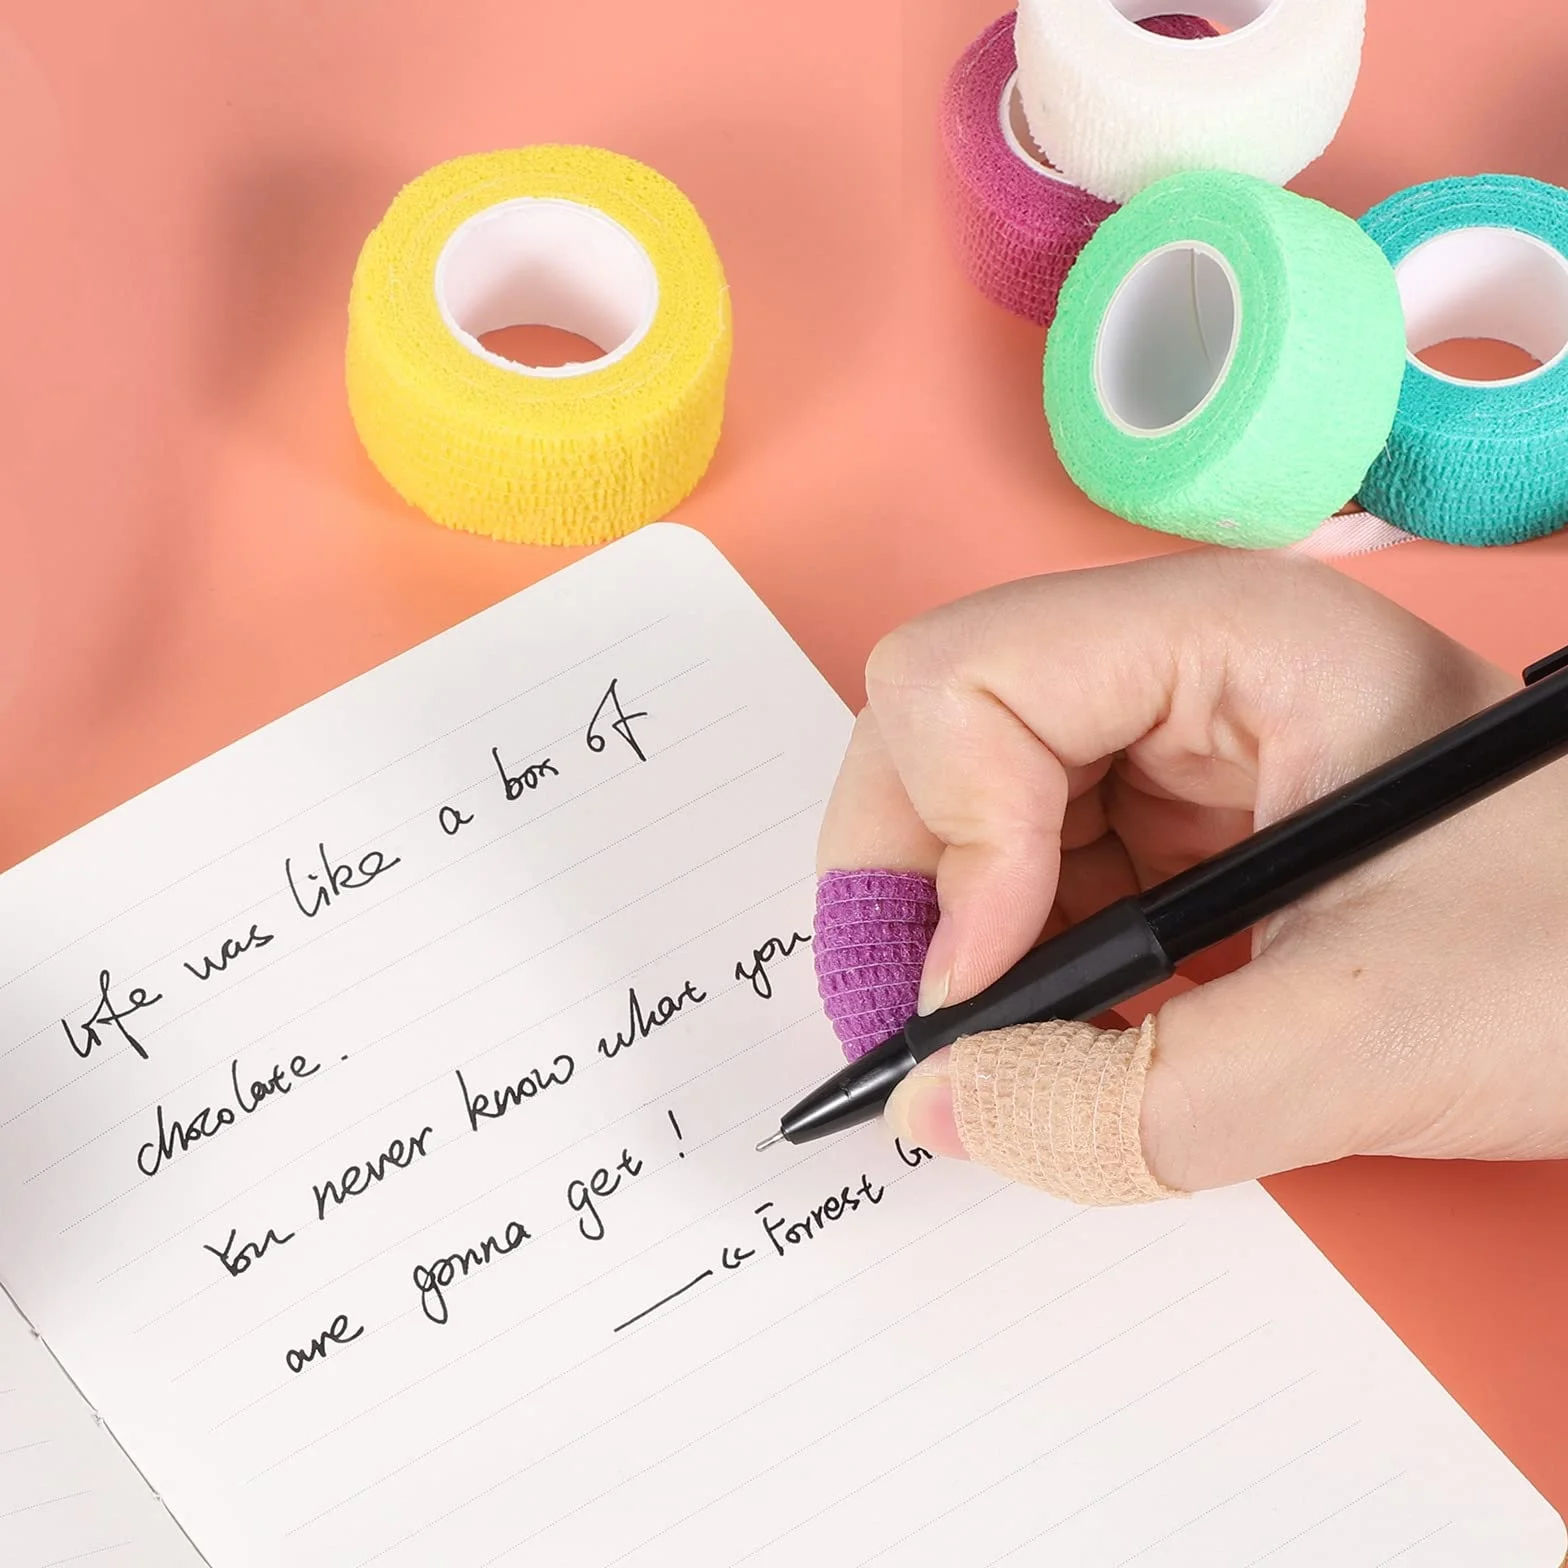 Life was like a box of
chocolate.
You never know what you
are gonna get!
—《Forrest G